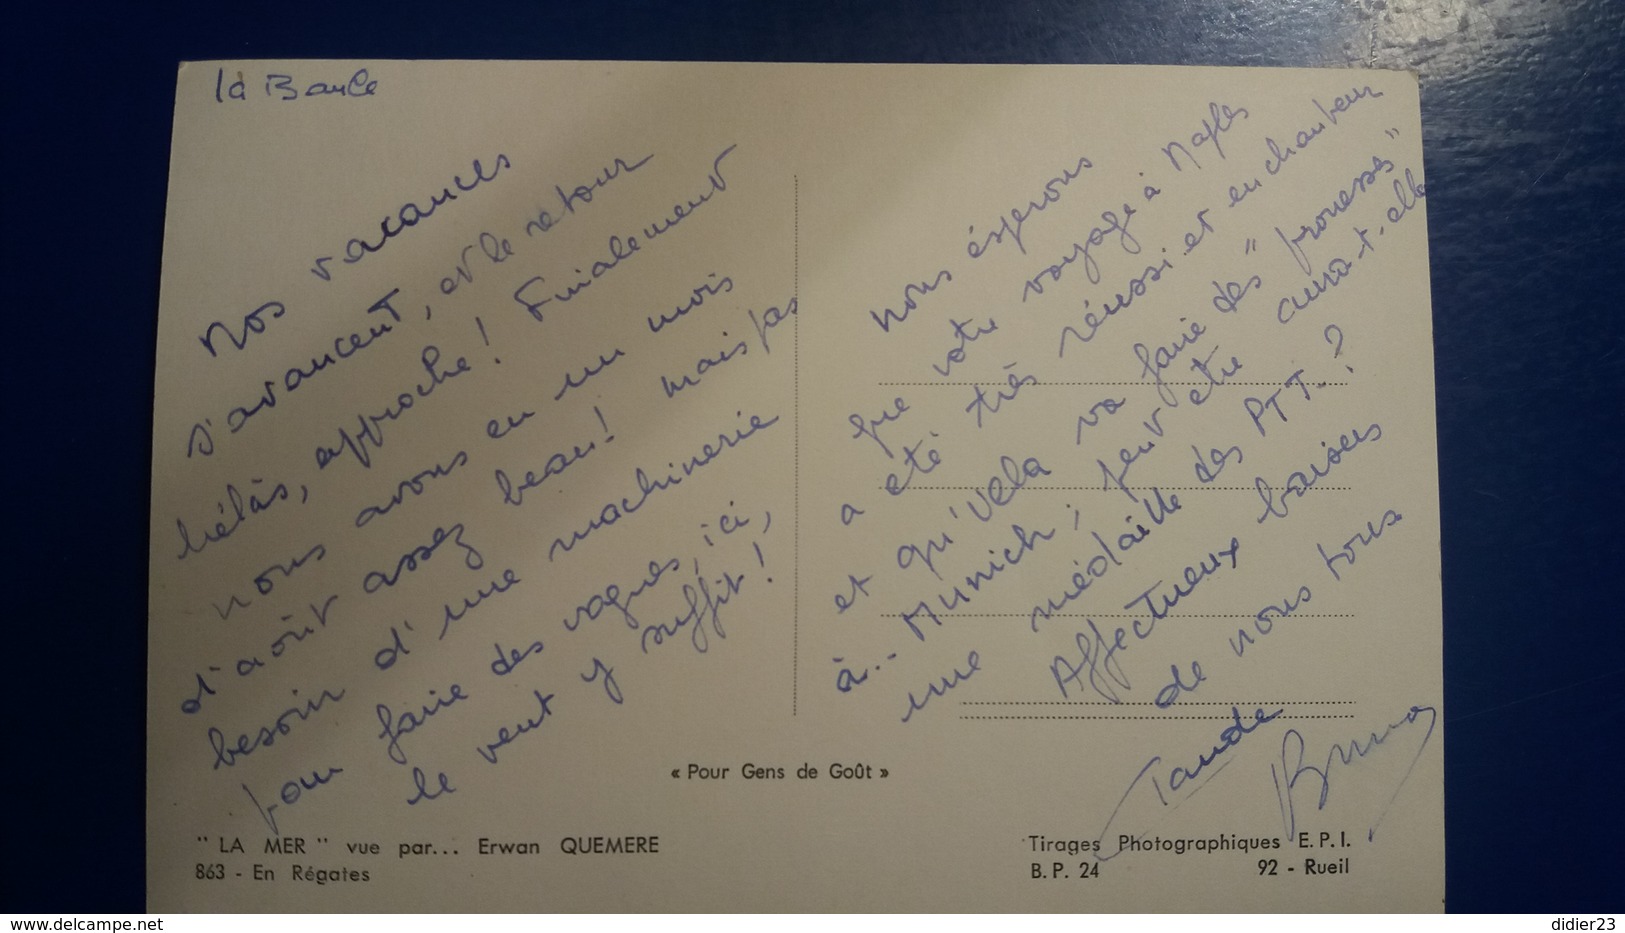 la Baule
Nos vacances
s'avancent, et le retour
hélàs, approche! Finalement
nous avons eu un mois
d'août assez beau! mais pas
besoin d'une machinerie
pour faire des vagues, ici,
le vent y suffit!
nous éspérons
que votre voyage à Naples
a été très réussi et enchanteur
et qu'Vela va faire des "prouesses"
à.. Munich; peut etre aura-t-elle
une médaille des PTT..?
Affectueux baisers
de nous tous
Bruno
« Pour Gens de Goût »
" LA MER " vue par... Erwan QUEMERE
863 - En Régates
Tirages Photographiques E.P.I.
B.P. 24 92 - Rueil
didier23